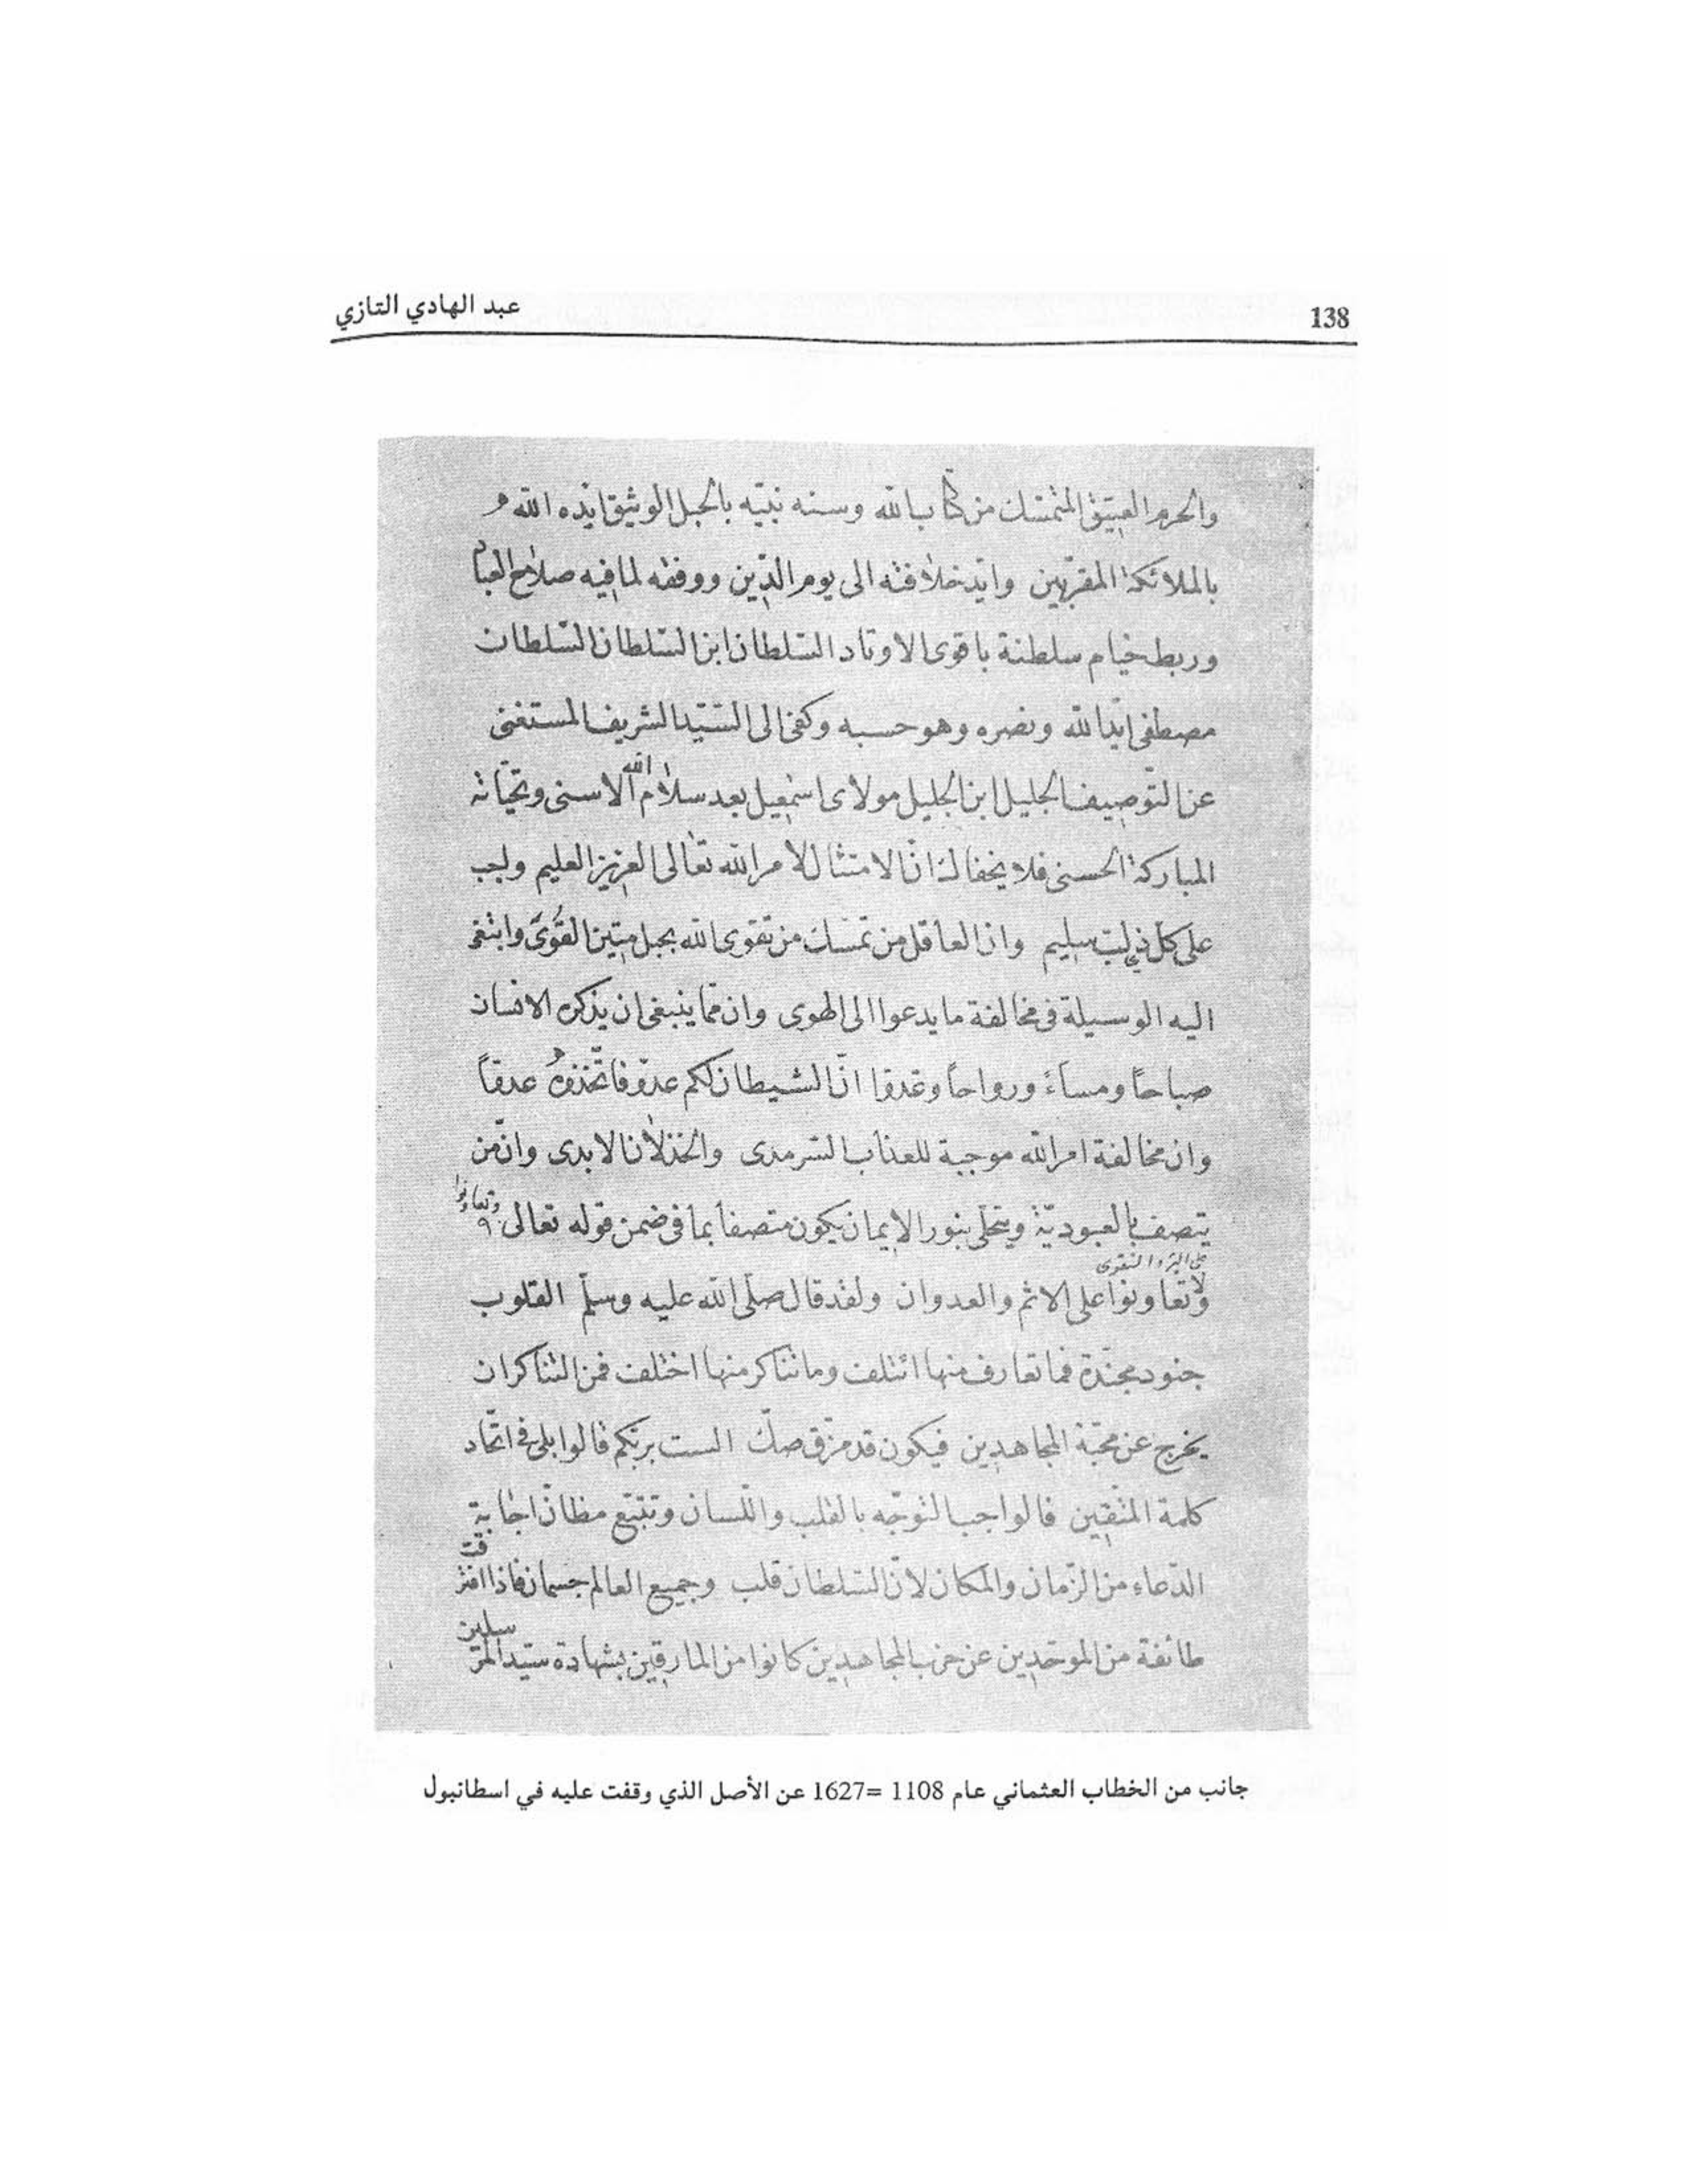 138
عبد الهادي التازي
والحرم العتيق المتمسك من كتاب الله وسنه نبيّه بالحبل الوثيق ايّده الله
بالملائكة المقرّبين وايّد خلافته الى يوم الدّين ووفقه لما فيه صلاح العباد
وربط خيام سلطنة باقوى الاوتاد السّلطان ابن السّلطان السّلطان
مصطفى ايّد الله ونصره وهو حسبه وكفى الى السّيّد الشريف المستغنى
عن التّوصيف الجليل ابن الجليل مولاى اسمعيل بعد سلام الله الاسنى وتحيّاته
المباركة الحسنى فلا يخفاك انّ الامتثال لامر الله تعالى العزيز العليم واجب
على كلّ ذي لبّ سليم وان العاقل من تمسّك من تقوى الله بحبل متين القُوَى وابتغى
اليه الوسيلة فى مخالفة ما يدعوا الى الهوى وان ممّا ينبغى ان يذكره الانسان
صباحاً ومساءً ورواحاً وغدوّا انّ الشيطان لكم عدوّ فاتّخذوه عدوّاً
وان مخالفة امر الله موجبة للعذاب السّرمدى والخذلان الابدى وانّ من
يتصف بالعبوديّة ويتحلّى بنور الايمان يكون متصفاً بما فى ضمن قوله تعالى وتعاونوا
على البرّ والتقوى
ولا تعاونوا على الاثم والعدوان ولقد قال صلّى الله عليه وسلّم القلوب
جنود مجنّدة فما تعارف منها ائتلف وما تناكر منها اختلف فمن التناكر ان
يخرج عن محبّة المجاهدين فيكون قد مزّق صكّ الست بربّكم قالوا بلى فى اتّحاد
كلمة المتّقين فالواجب التوجّه بالقلب واللّسان وتتبّع مظانّ اجابة
الدّعاء من الزّمان والمكان لانّ السّلطان قلب وجميع العالم جسمان فاذا افترقت
طائفة من الموحّدين عن حزب المجاهدين كانوا من المارقين بشهادة سيّد المرسلين
جانب من الخطاب العثماني عام 1108 =1627 عن الأصل الذي وقفت عليه في اسطانبول